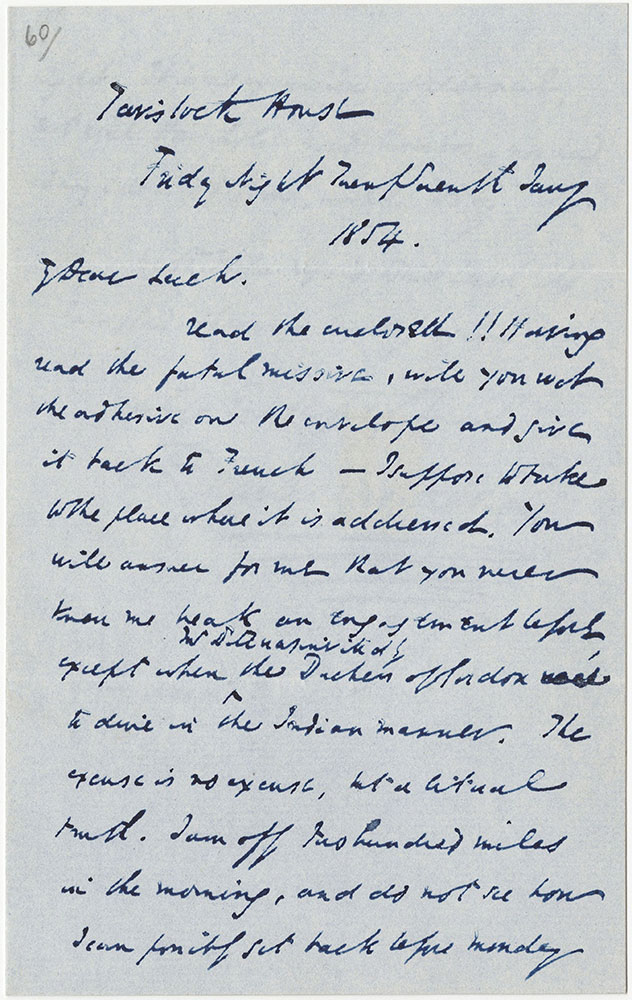 60/
Tavistock House
Friday Night Twentyseventh Jany
1854.
My Dear Leech.
read the enclosed!! Having
read the fatal missive, will you wet
the adhesive on the envelope and give
it back to French — I suppose to take
to the place where it is addressed. You
will answer for me that you never
knew me break an engagement before,
Mr D. was invited by
except when the Duchess of Gordon
to dine in the Indian manner. The
excuse is no excuse, but a literal
truth. I am off two hundred miles
in the morning, and do not see how
I can possibly get back before Monday